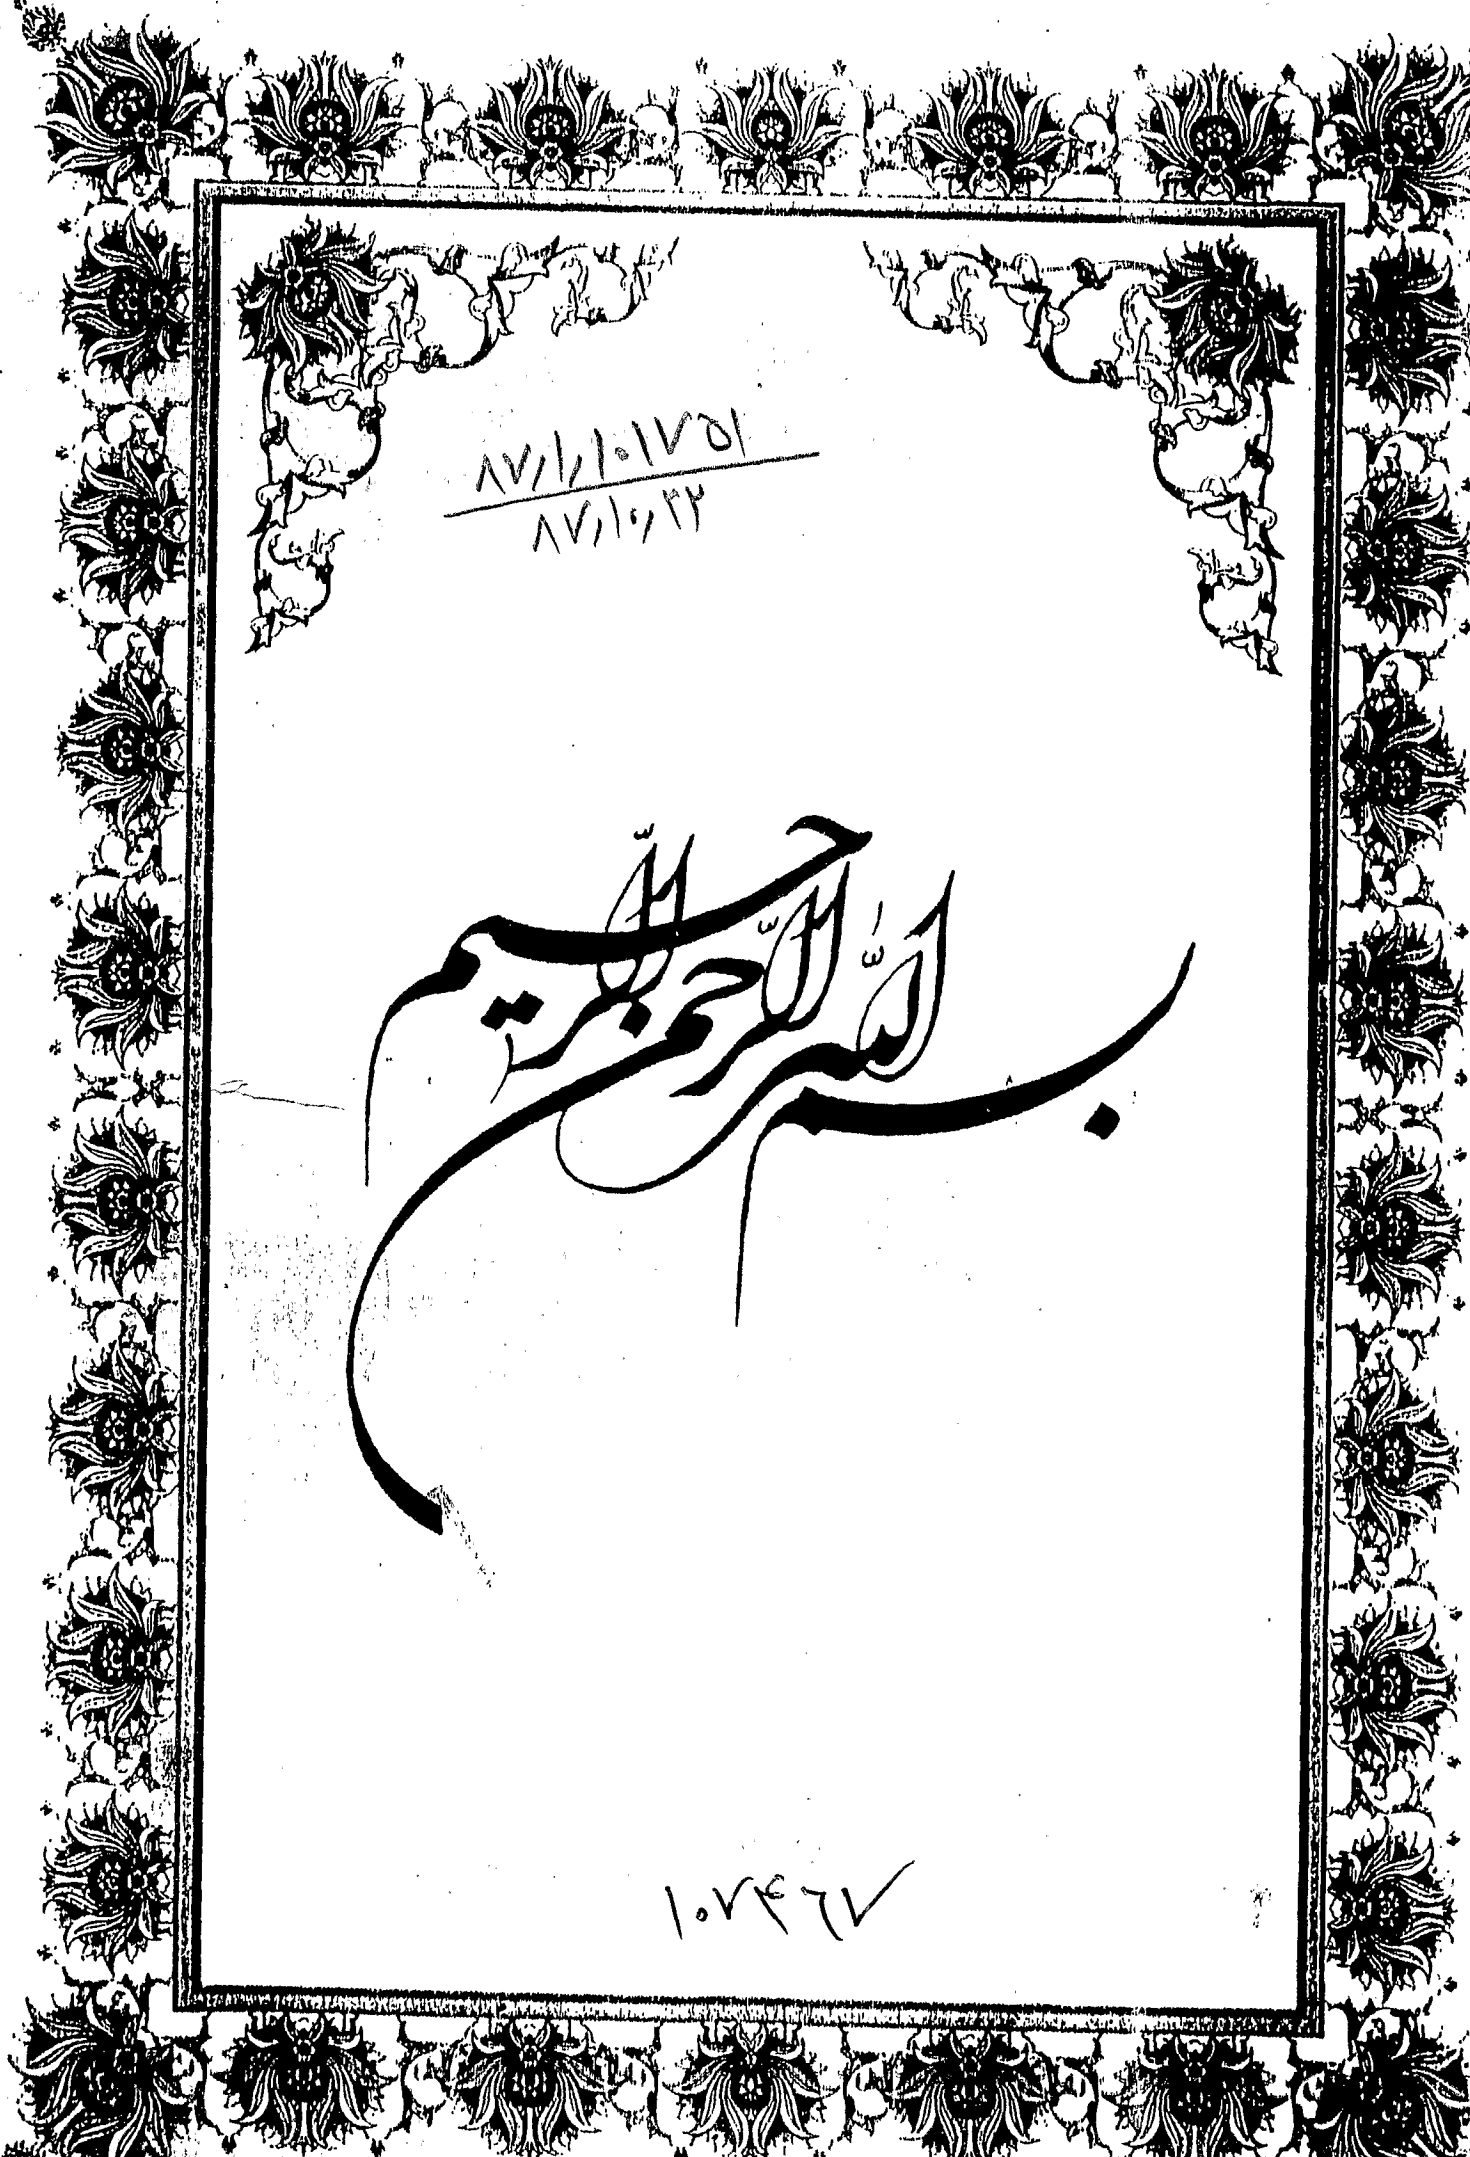 ۸۷/۱/۱۰۱۷۵۱
۸۷/۱۰/۲۲
بسم الله الرحمن الرحیم
۱۰۷۴۶۷